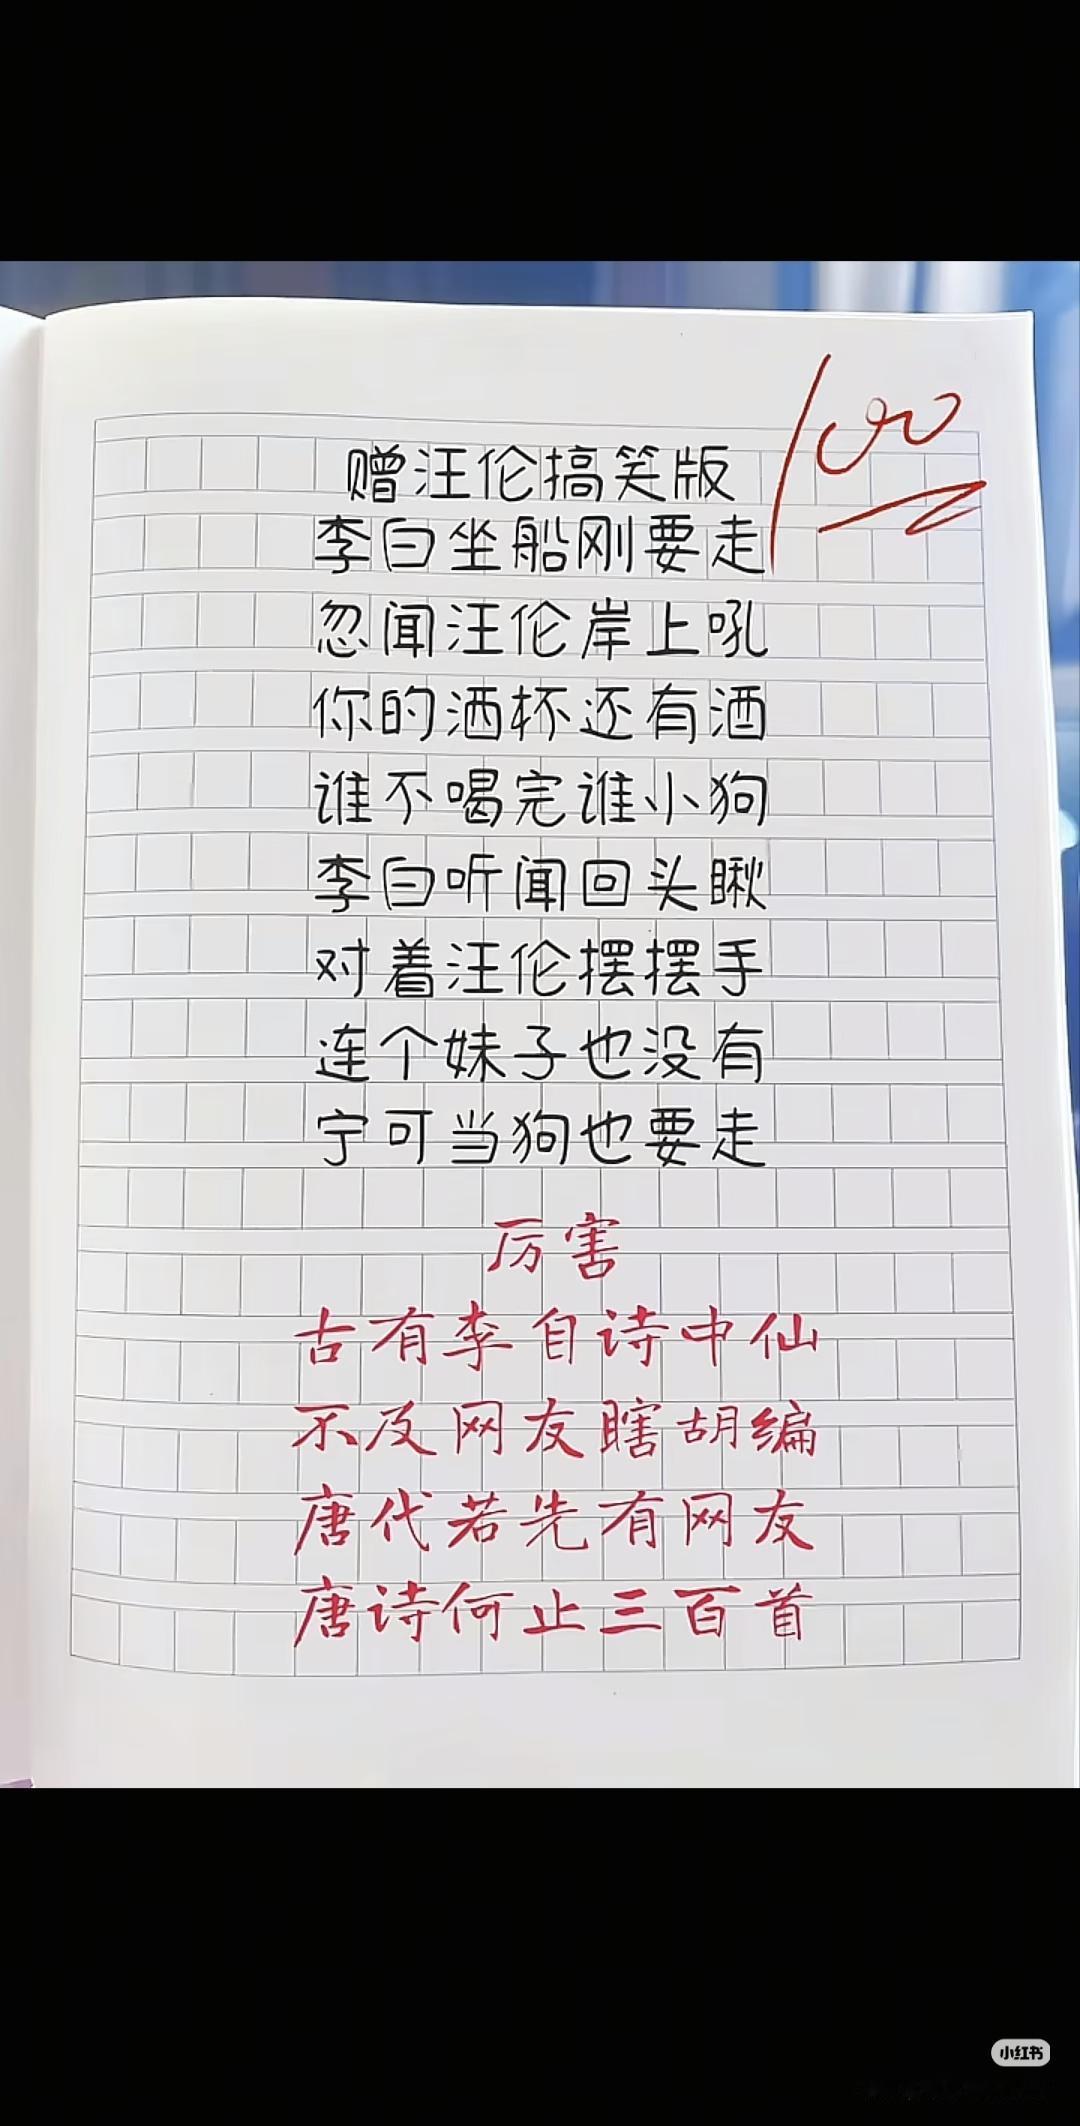 100
赠汪伦搞笑版
李白坐船刚要走
忽闻汪伦岸上吼
你的酒杯还有酒
谁不喝完谁小狗
李白听闻回头瞅
对着汪伦摆摆手
连个妹子也没有
宁可当狗也要走
厉害
古有李白诗中仙
不及网友瞎胡编
唐代若先有网友
唐诗何止三百首
小红书